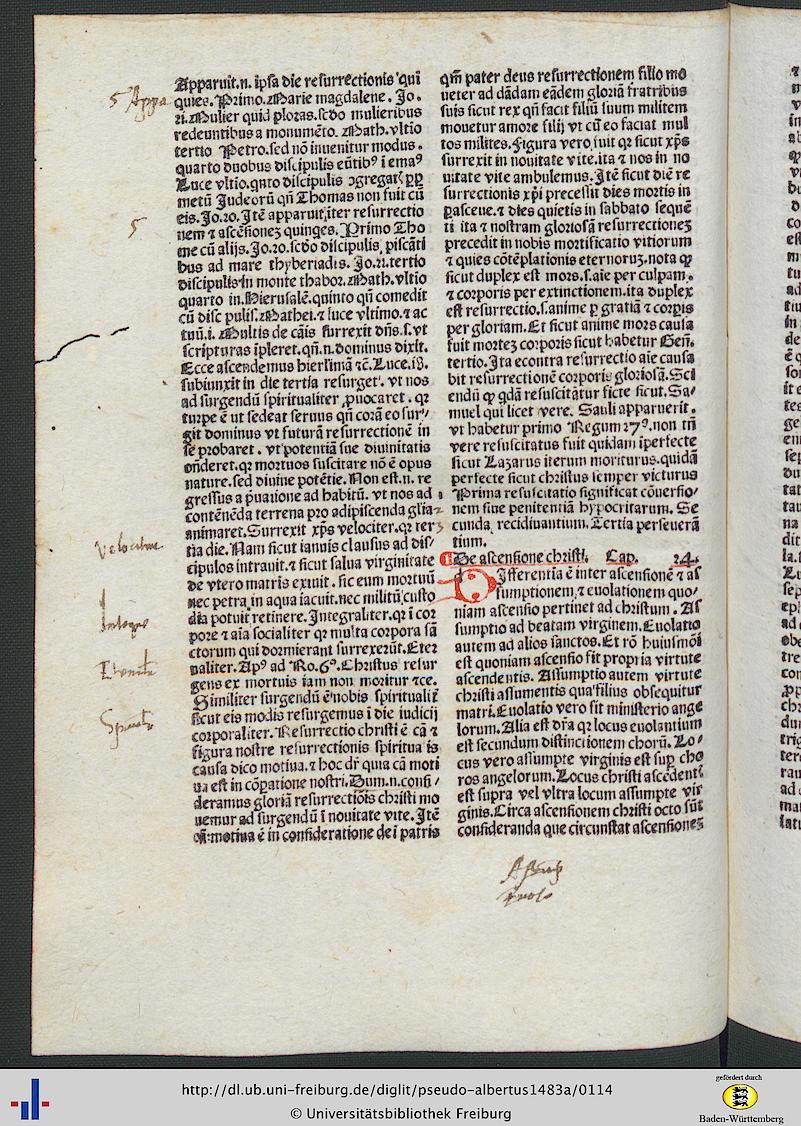 Apparuit.n. ipsa die resurrectionis qui
quies. Primo. Marie magdalene. Jo.
ri. Mulier quid ploras. scďo mulieribus
redeuntibus a monumēto. Math. vltio
tertio Petro. sed nō inuenitur modus.
quarto duobus discipulis eūtibꝰ ī emaꝰ
Luce vltio. qnto discipulis ꝯgregatꝭ ꝓpṗ
metū Judeorū qñ Thomas non fuit cū
eis. Jo. 20. Itē apparuit iter resurrectio
nem ⁊ ascēsionez quinqes. Primo Tho
me cū alijs. Jo. 20. scďo discipulis piscāti
bus ad mare thyberiadis. Jo. 21. tertio
discipulis in monte thabor. Math. vltio
quarto in Hierusalē. quinto qñ comedit
cū disc pulis. Mathei. ⁊ luce vltimo. ⁊ ac
tuū. i. Multis de cāis surrexit dñs. s. vt
scripturas ipleret. qñ. n. dominus dixit.
Ecce ascendemus hierlimā ⁊c. Luce. 18.
subiunxit in die tertia resurgetꝭ. vt nos
ad surgendū spiritualiter ꝓuocaret. qꝛ
turpe ē ut sedeat seruus qñ corā eo sur⸗
git dominus vt futurā resurrectionē in
se probaret. vt potentiā sue diuinitatis
oñderet. qꝛ mortuos suscitare nō ē opus
nature. sed diuine potētie. Non est. n. re
gressus a puatione ad habitū. vt nos ad
contēnēda terrena pro adipiscenda glia
animaret. Surrexit xp̄s velociter. qꝛ ter
tia die. Nam sicut ianuis clausus ad dis⸗
cipulos intrauit. ⁊ sicut salua virginitate
de vtero matris exiuit. sic eum mortuū
nec petra in aqua iacuit. nec militū custo
dia potuit retinere. Integraliter. qꝛ ī cor
pore ⁊ aīa socialiter qꝛ multa corpora sā
ctorum qui dormierant surrexerūt. Eter
naliter. Apꝰ ad Ro. 6ꝰ. Christus resur
gens ex mortuis iam non moritur ⁊ce.
Similiter surgendū ē nobis spiritualiť
sicut eis modis resurgemus ī die iudicij
corporaliter. Resurrectio christi ē cā ⁊
figura nostre resurrectionis spiritua is
causa dico motiua. ⁊ hoc dř quia cā moti
ua est in cōpatione nostri. Dum. n. consi⸗
deramus gloriā resurrectiōis christi mo
uemur ad surgendū ī nouitate vite. Itē
cā motiua ē in consideratione dei patris
qm̄ pater deus resurrectionem filio mo
ueter ad dādam eādem gloriā fratribus
suis sicut rex qñ facit filiū suum militem
mouetur amore filij vt cū eo faciat mul
tos milites. Figura vero fuit qꝛ sicut xp̄s
surrexit in nouitate vite. ita ⁊ nos in no
uitate vite ambulemus. Itē sicut diē re
surrectionis xp̄i precessit dies mortis in
ꝑasceue. ⁊ dies quietis in sabbato sequē
ti ita ⁊ nostram gloriosā resurrectionez
precedit in nobis mortificatio vitiorum
⁊ quies cōtēplationis eternoruz. nota ꝙ
sicut duplex est mors. s. aīe per culpam.
⁊ corporis per extinctionem. ita duplex
est resurrectio. s. anime ꝑ gratiā ⁊ corpīs
per gloriam. Et sicut anime mors causa
fuit mortez corporis sicut habetur Geñ.
tertio. Ita econtra resurrectio aīe causa
bit resurrectionē corporis gloriosā. Sci
endū ꝙ qdā resuscitātur ficte sicut. Sa⸗
muel qui licet vere. Sauli apparuerit.
vt habetur primo Regum 27ꝰ. non tñ
vere resuscitatus fuit quidam īperfecte
sicut Lazarus iterum moriturus. quidā
perfecte sicut christus semper victurus
Prima resuscitatio significat cōuersio⸗
nem siue penitentiā hypocritarum. Se
cunda recidiuantium. Tertia perseuerā
tium.
De ascensione christi. Cap. 24.
Differentia ē inter ascensionē ⁊ as
sumptionem ⁊ euolationem quo⸗
niam ascensio pertinet ad christum. As
sumptio ad beatam virginem. Euolatio
autem ad alios sanctos. Et rō huiusmōi
est quoniam ascensio fit propria virtute
ascendentis. Assumptio autem virtute
christi assumentis qua filius obsequitur
matri. Euolatio vero fit ministerio ange
lorum. Alia est dr̄a qꝛ locus euolantium
est secundum distinctionem chorū. Lo⸗
cus vero assumpte virginis est suꝑ cho
ros angelorum. Locus christi ascēdentꝭ
est supra vel vltra locum assumpte vir
ginis. Circa ascensionem christi octo sūt
consideranda que circumstāt ascensionez
5 Appa
5
velociter
Integre
Eternalr
http://dl.ub.uni-freiburg.de/diglit/pseudo-albertus1483a/0114
© Universitätsbibliothek Freiburg
gefördert durch
Baden-Württemberg